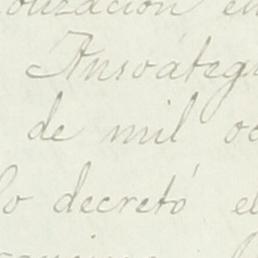 olización en
Ansoateg
de mil oc
lo decretó el